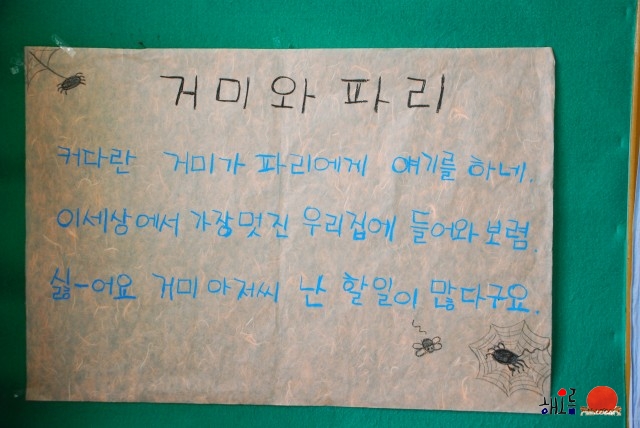 거미와 파리
커다란 거미가 파리에게 얘기를 하네.
이세상에서 가장멋진 우리집에 들어와보렴.
싫-어요 거미아저씨 난 할일이 많다구요.
해오름